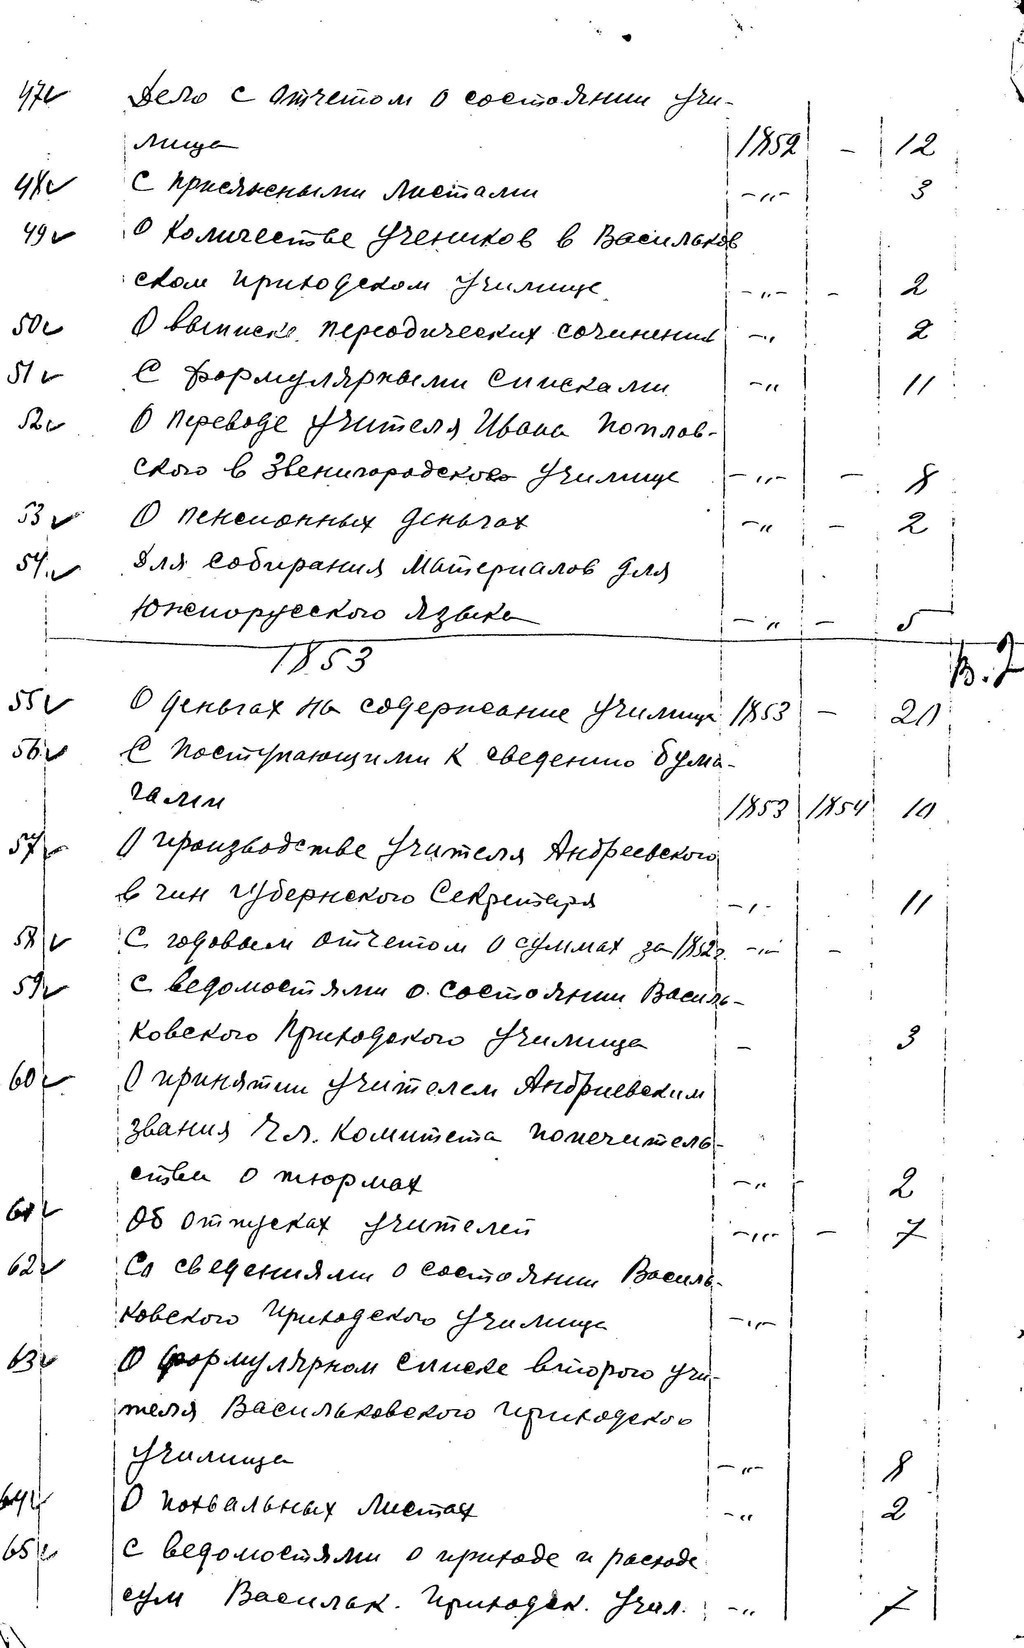 47 Дело с отчетом о состоянии учи-
лища 1852 - 12
48 С присяжными листами -"- 3
49 О количестве учеников в Васильков
ском приходском училище -"- - 2
50 О выписке периодических сочинений -" 2
51 С формулярными списками -" 11
52 О переводе учителя Ивана Поплав-
ского в Звенигородского училище -"- - 8
53 О пенсионных деньгах -" - 2
54. Для собирания материалов для
Южнорусского языка -" - 5
1853
В. 2
55 О деньгах на содержание училища 1853 - 20
56 С поступающими к сведению бума-
гами 1853 1854 10
57 О производстве учителя Андреевского
в чин губернского Секретаря -"- 11
58 С годовым отчетом о суммах за 1852г. -"- -
59 с ведомостями о состоянии Василь-
ковского Приходского училища - 3
60 О принятии учителем Андриевским
звания Чл. комитета попечитель-
ства о тюрмах -" - 2
61 Об отпусках учителей -"- - 7
62 Со сведениями о состоянии Василь-
ковского приходского училища -"-
63 О формулярном списке второго учи-
теля Васильковского приходского
училища -"- 8
64 О похвальных листах -" 2
65 С ведомостями о приходе и расходе
сум Васильк. приходск. Учил. -" 7